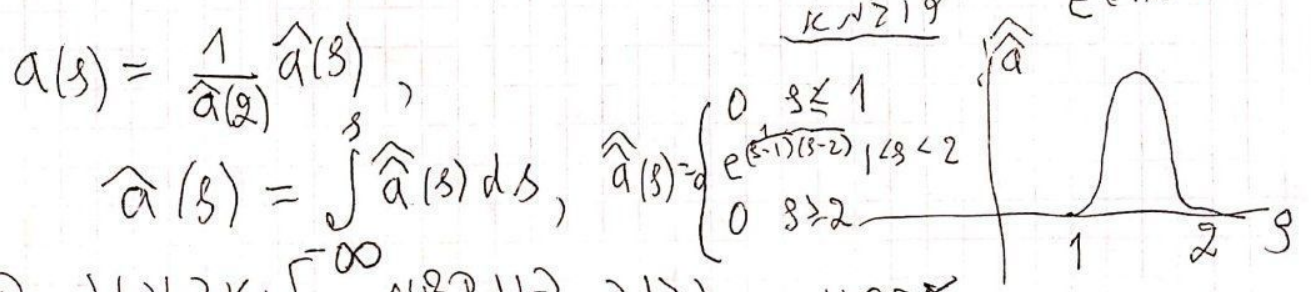 a(s) = 1/â(2) â(s),
â(s) = ∫_{-∞}^{s} \hat{\hat{a}}(s) ds, \hat{\hat{a}}(s) = { 0 s ≤ 1
e^{1/((s-1)(s-2))}, 1 < s < 2
0 s ≥ 2
\hat{\hat{a}}
1 2 s